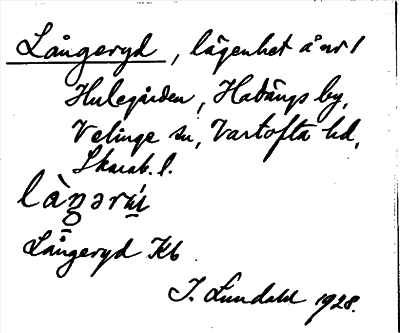 Långeryd, lägenhet å nr 1
Hulegården, Habängs by,
Velinge sn, Vartofta hd,
Skarab. l.
làŋərɯ́
Långeryd Kb
I. Lundahl 1928.